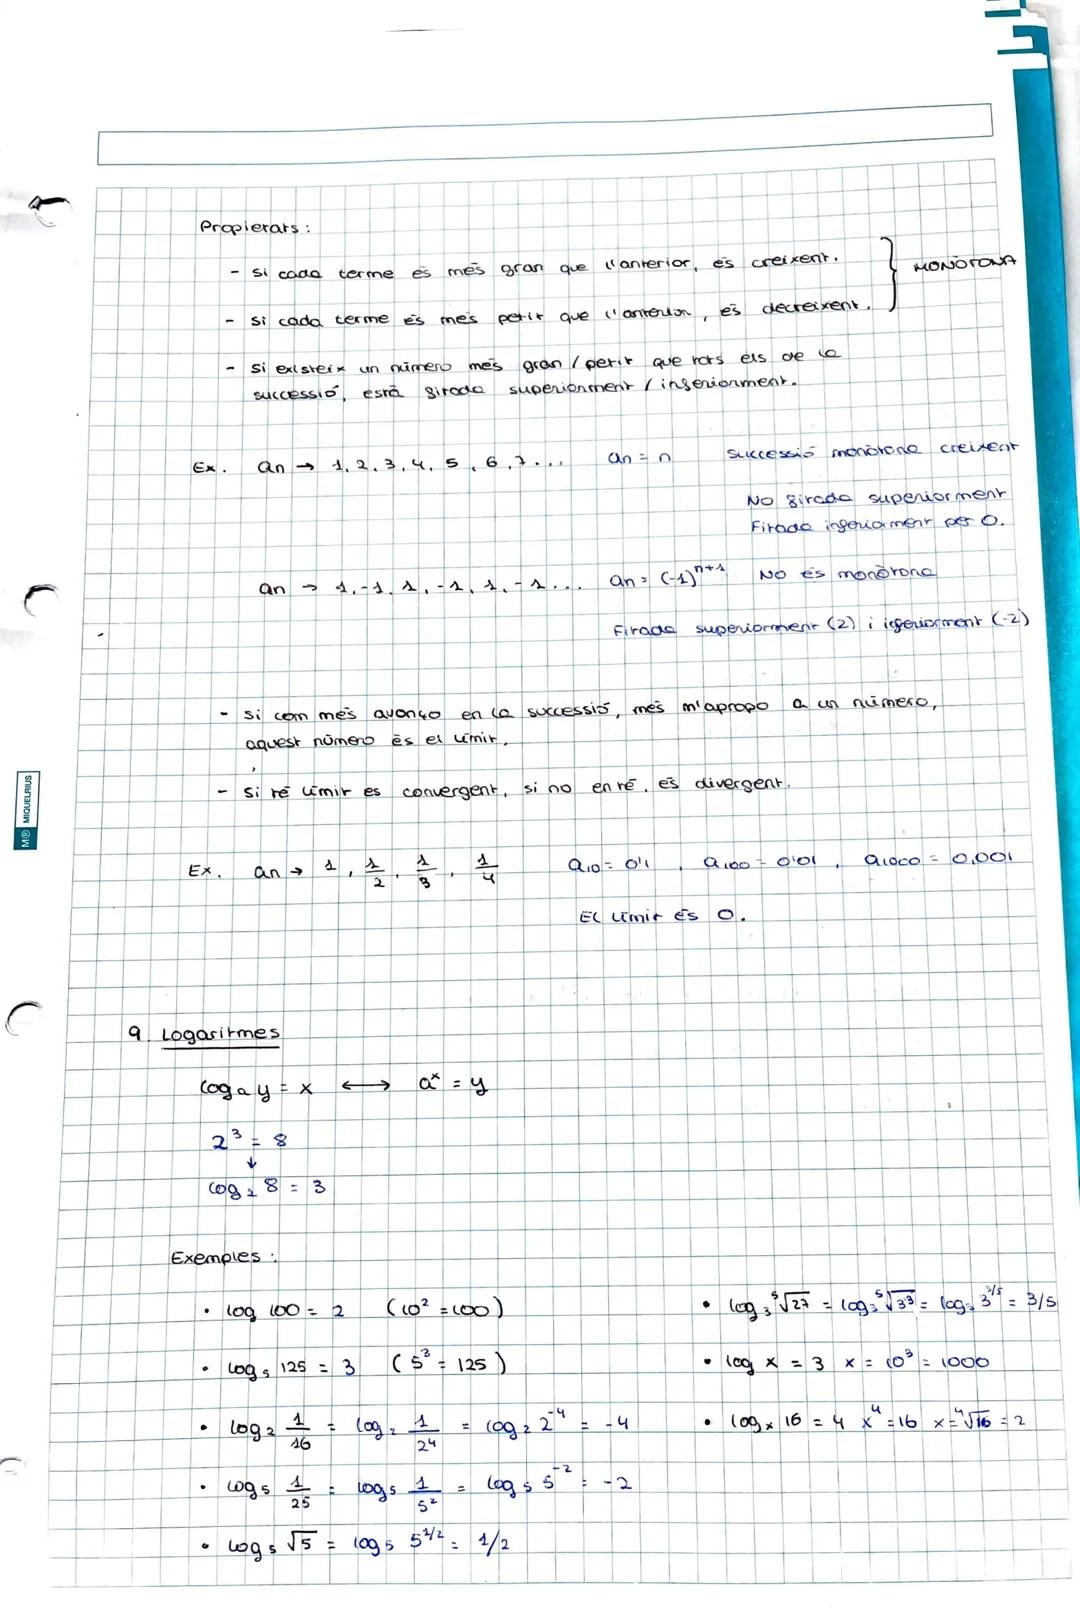 Propietats :
- si cada terme és més gran que l'anterior, és creixent.
MONÒTONA
- si cada terme és més petit que l'anterior, és decreixent.
- si existeix un número més gran / petit que tots els de la
successió, està fitada superiorment / inferiorment.
Ex. an → 1, 2, 3, 4, 5, 6, 7... an = n successió monòtona creixent
No fitada superiorment
Fitada inferiorment per 0.
an → 1, -1, 1, -1, 1, -1... an = (-1)^{n+1} No és monòtona
Fitada superiorment (2) i inferiorment (-2)
- si com més avanço en la successió, més m'apropo a un número,
aquest número és el límit.
- si té límit es convergent, si no en té, és divergent.
Ex. an → 1, 1/2, 1/3, 1/4 a10 = 0'1, a100 = 0'01, a1000 = 0,001
El límit és 0.
M® MIQUELRIUS
9. Logaritmes
log_a y = x ⟷ a^x = y
2³ = 8
↓
log₂ 8 = 3
Exemples :
• log 100 = 2 (10² = 100)
• log₅ 125 = 3 (5³ = 125)
• log₂ 1/16 = log₂ 1/2⁴ = log₂ 2⁻⁴ = -4
• log₅ 1/25 = log₅ 1/5² = log₅ 5⁻² = -2
• log₅ √5 = log₅ 5^{1/2} = 1/2
• log₃ ⁵√27 = log₃ ⁵√3³ = log₃ 3^{3/5} = 3/5
• log x = 3 x = 10³ = 1000
• log_x 16 = 4 x⁴ = 16 x = ⁴√16 = 2